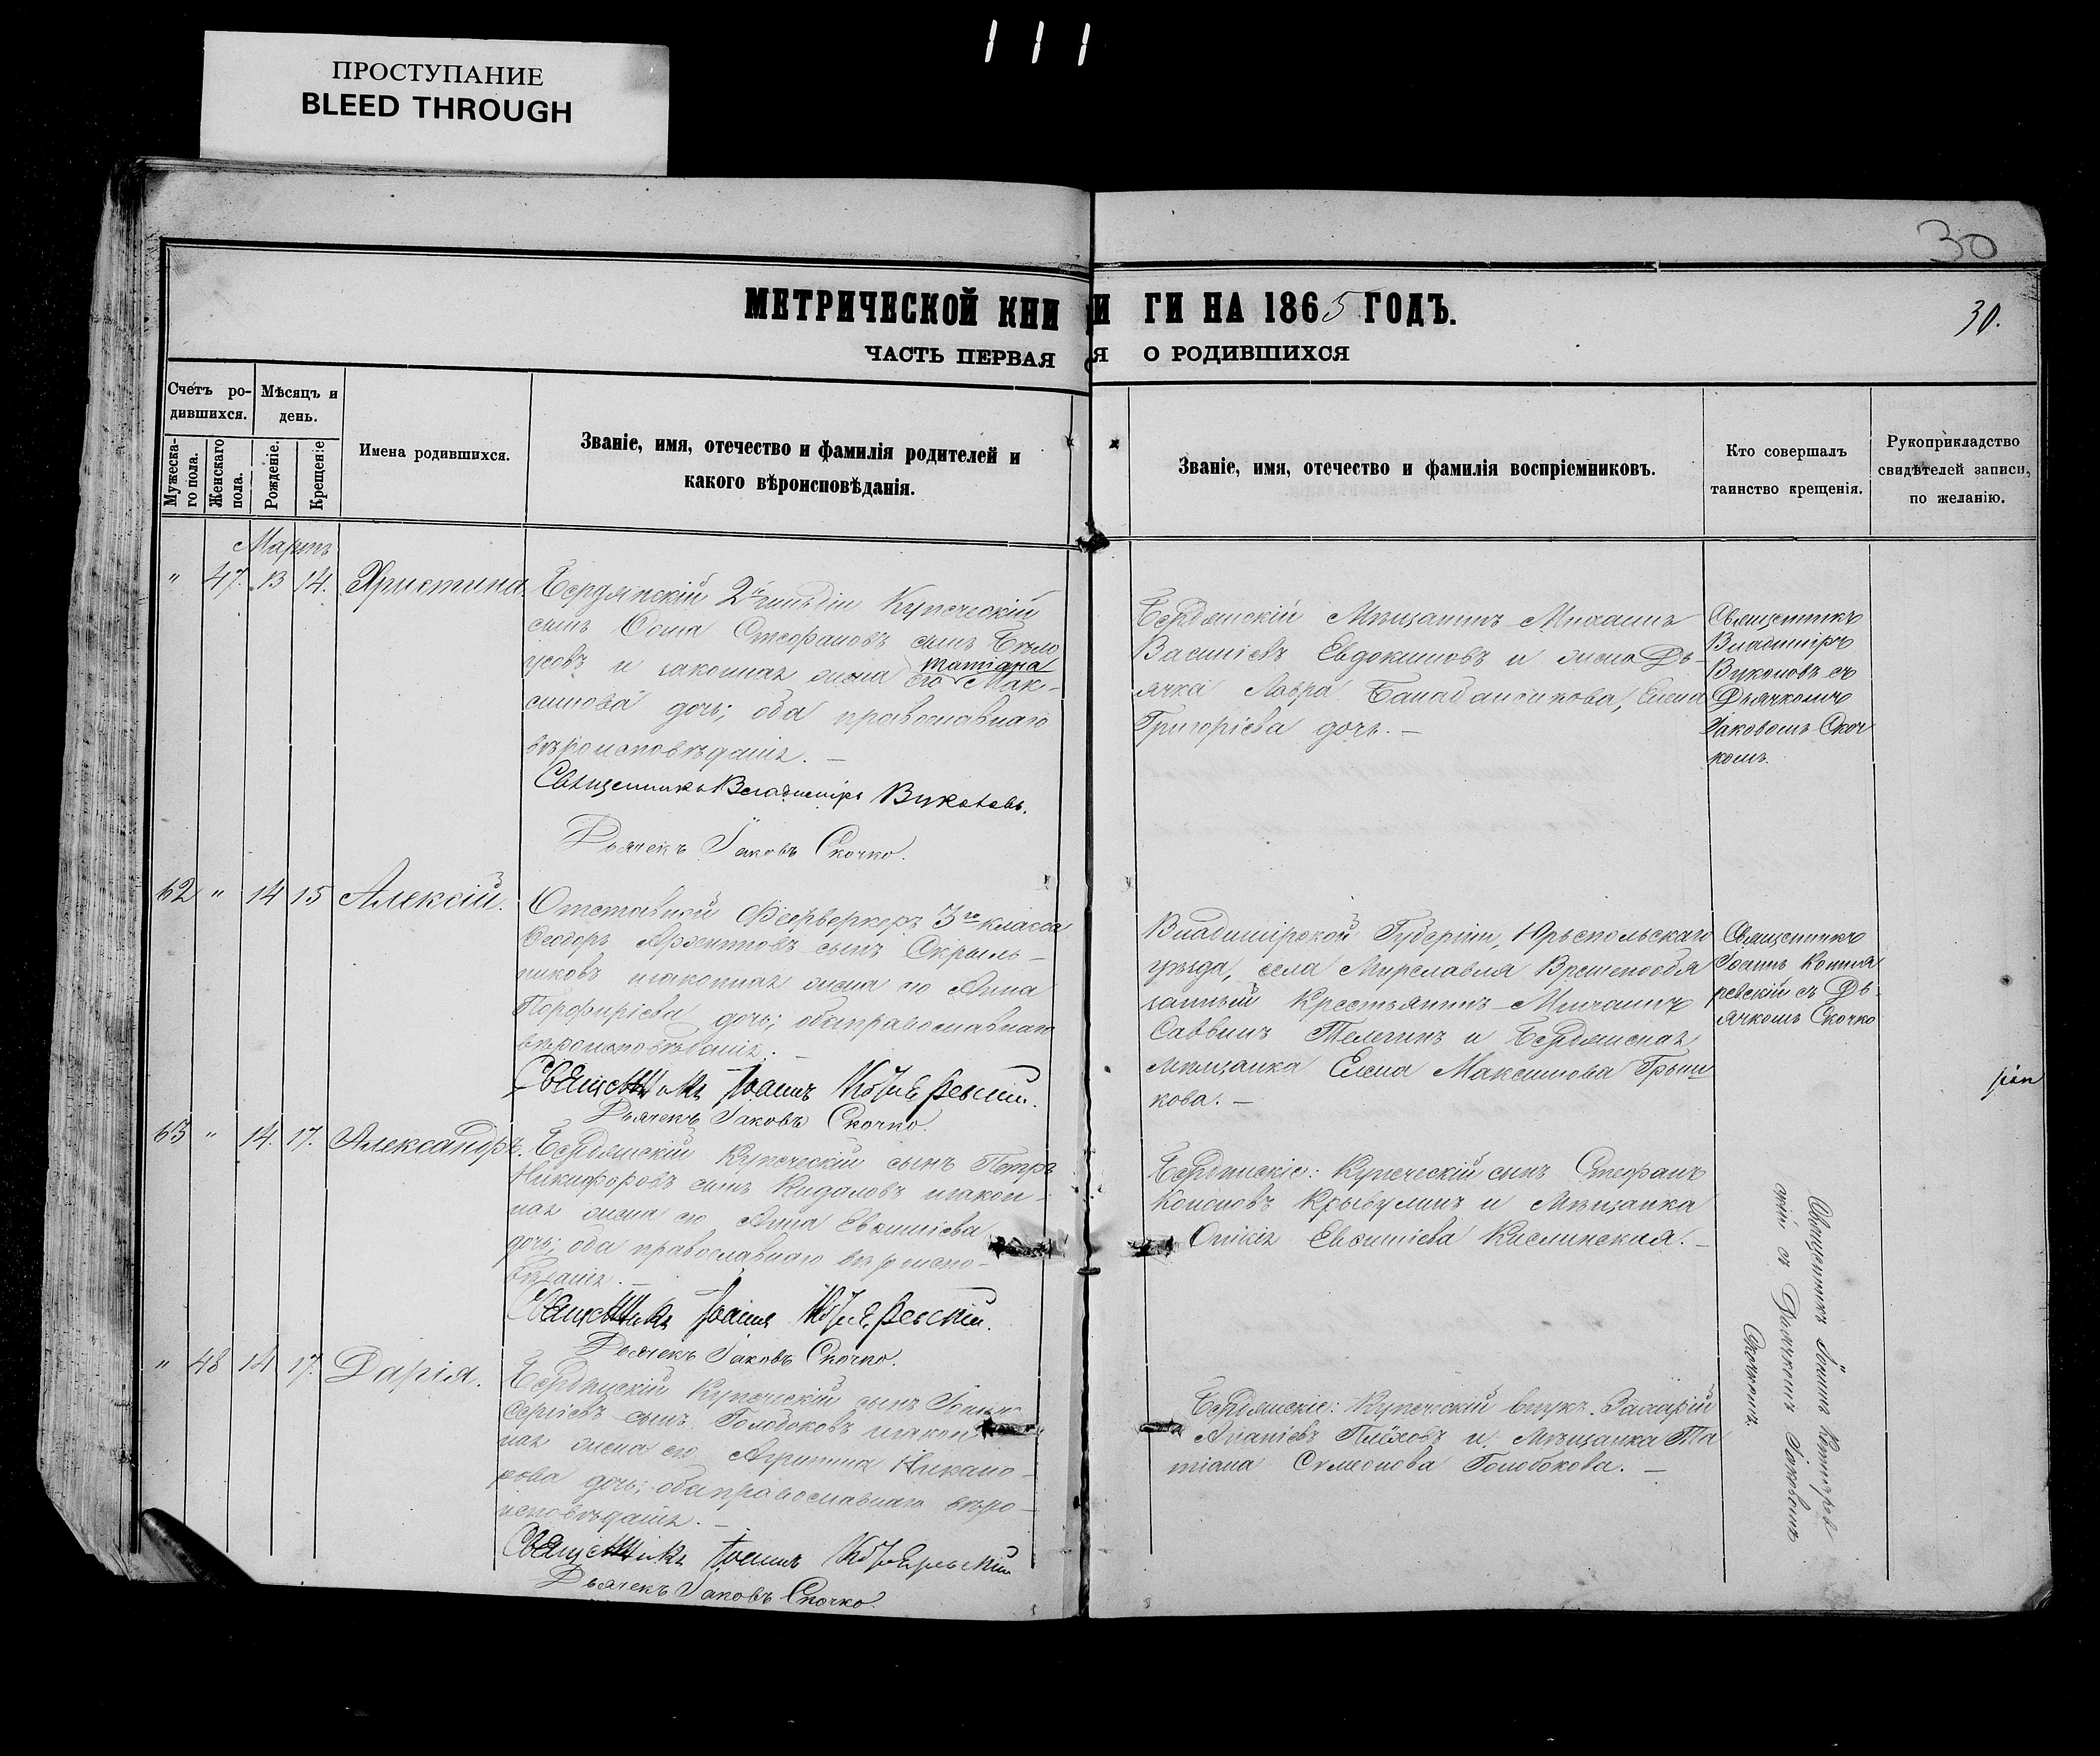 111
ПРОСТУПАНИЕ
BLEED THROUGH
30
МЕТРИЧЕСКОЙ КНИ
И ГИ НА 1865 ГОДЪ.
30.
ЧАСТЬ ПЕРВАЯ
Я О РОДИВШИХСЯ
Счетъ ро-
дившихся.
Мѣсяцъ и
день.
Мужеска-
го пола.
Женскаго
пола.
Рожденіе.
Крещеніе
Имена родившихся.
Званіе, имя, отечество и фамилія родителей и
какого вѣроисповѣданія.
Званіе, имя, отечество и фамилія воспріемниковъ.
Кто совершалъ
таинство крещенія.
Рукоприкладство
свидѣтелей записи,
по желанію.
Мартъ
" 47. 13 14. Христина.
Бердянскій 2й гильдіи Купеческій
сынъ Ѳома Стефановъ сынъ Бѣло
усовъ и законная жена его Татіана Мак-
симова дочь; оба православнаго
вѣроисповѣданія. —
Священникъ Владиміръ Вуколовъ.
Дьячекъ Іаковъ Скочко.
Бердянскій Мѣщанинъ Михаилъ
Василіевъ Евдокимовъ и жена Дь-
ячка Лавра Балабаненкова, Елена
Григоріева дочь. —
Священникъ
Владиміръ
Вуколовъ съ
Дьячкомъ
Іаковомъ Скоч
комъ.
62 " 14 15 Алексій.
Отставной Фейерверкеръ 3го класса
Ѳеодоръ сынъ Скрыль-
никовъ и законная жена его Анна
Порфиріева дочь; оба православнаго
вѣроисповѣданія. —
Священникъ Іоаннъ Котляревскій.
Дьячекъ Іаковъ Скочко.
Владимірской Губерніи, Юрьепольскаго
уѣзда, села Мирславля Временнообя
занный Крестьянинъ Михаилъ
Саввинъ Телегинъ и Бердянская
мѣщанка Елена Максимова
кова. —
Священникъ
Іоаннъ Котля
ревскій съ Дь-
ячкомъ Скочко
63 " 14. 17. Александръ.
Бердянскій Купеческій сынъ Петръ
Никифоровъ сынъ Кидаловъ и закон-
ная жена его Анна Евѳиміева
дочь; оба православнаго вѣроиспо-
вѣданія. —
Священникъ Іоаннъ Котляревскій.
Дьячекъ Іаковъ Скочко.
Бердянскіе: Купеческій сынъ Стефанъ
Кононовъ и Мѣщанка
Евѳиміева Кислинская. —
Священникъ Іоаннъ Котлярев
скій съ Дьячкомъ Іаковомъ
Скочкомъ.
" 48 14 17. Дарія.
Бердянскій Купеческій сынъ Іоаннъ
Сергіевъ сынъ Голобоковъ и закон
ная жена его Агрипина Никано-
рова дочь; оба православнаго вѣро-
исповѣданія. —
Священникъ Іоаннъ Котляревскій
Дьячекъ Іаковъ Скочко.
Бердянскіе: Купеческій внукъ Захарій
Ананіевъ и Мѣщанка Та
тіана Сумеонова Голобокова. —